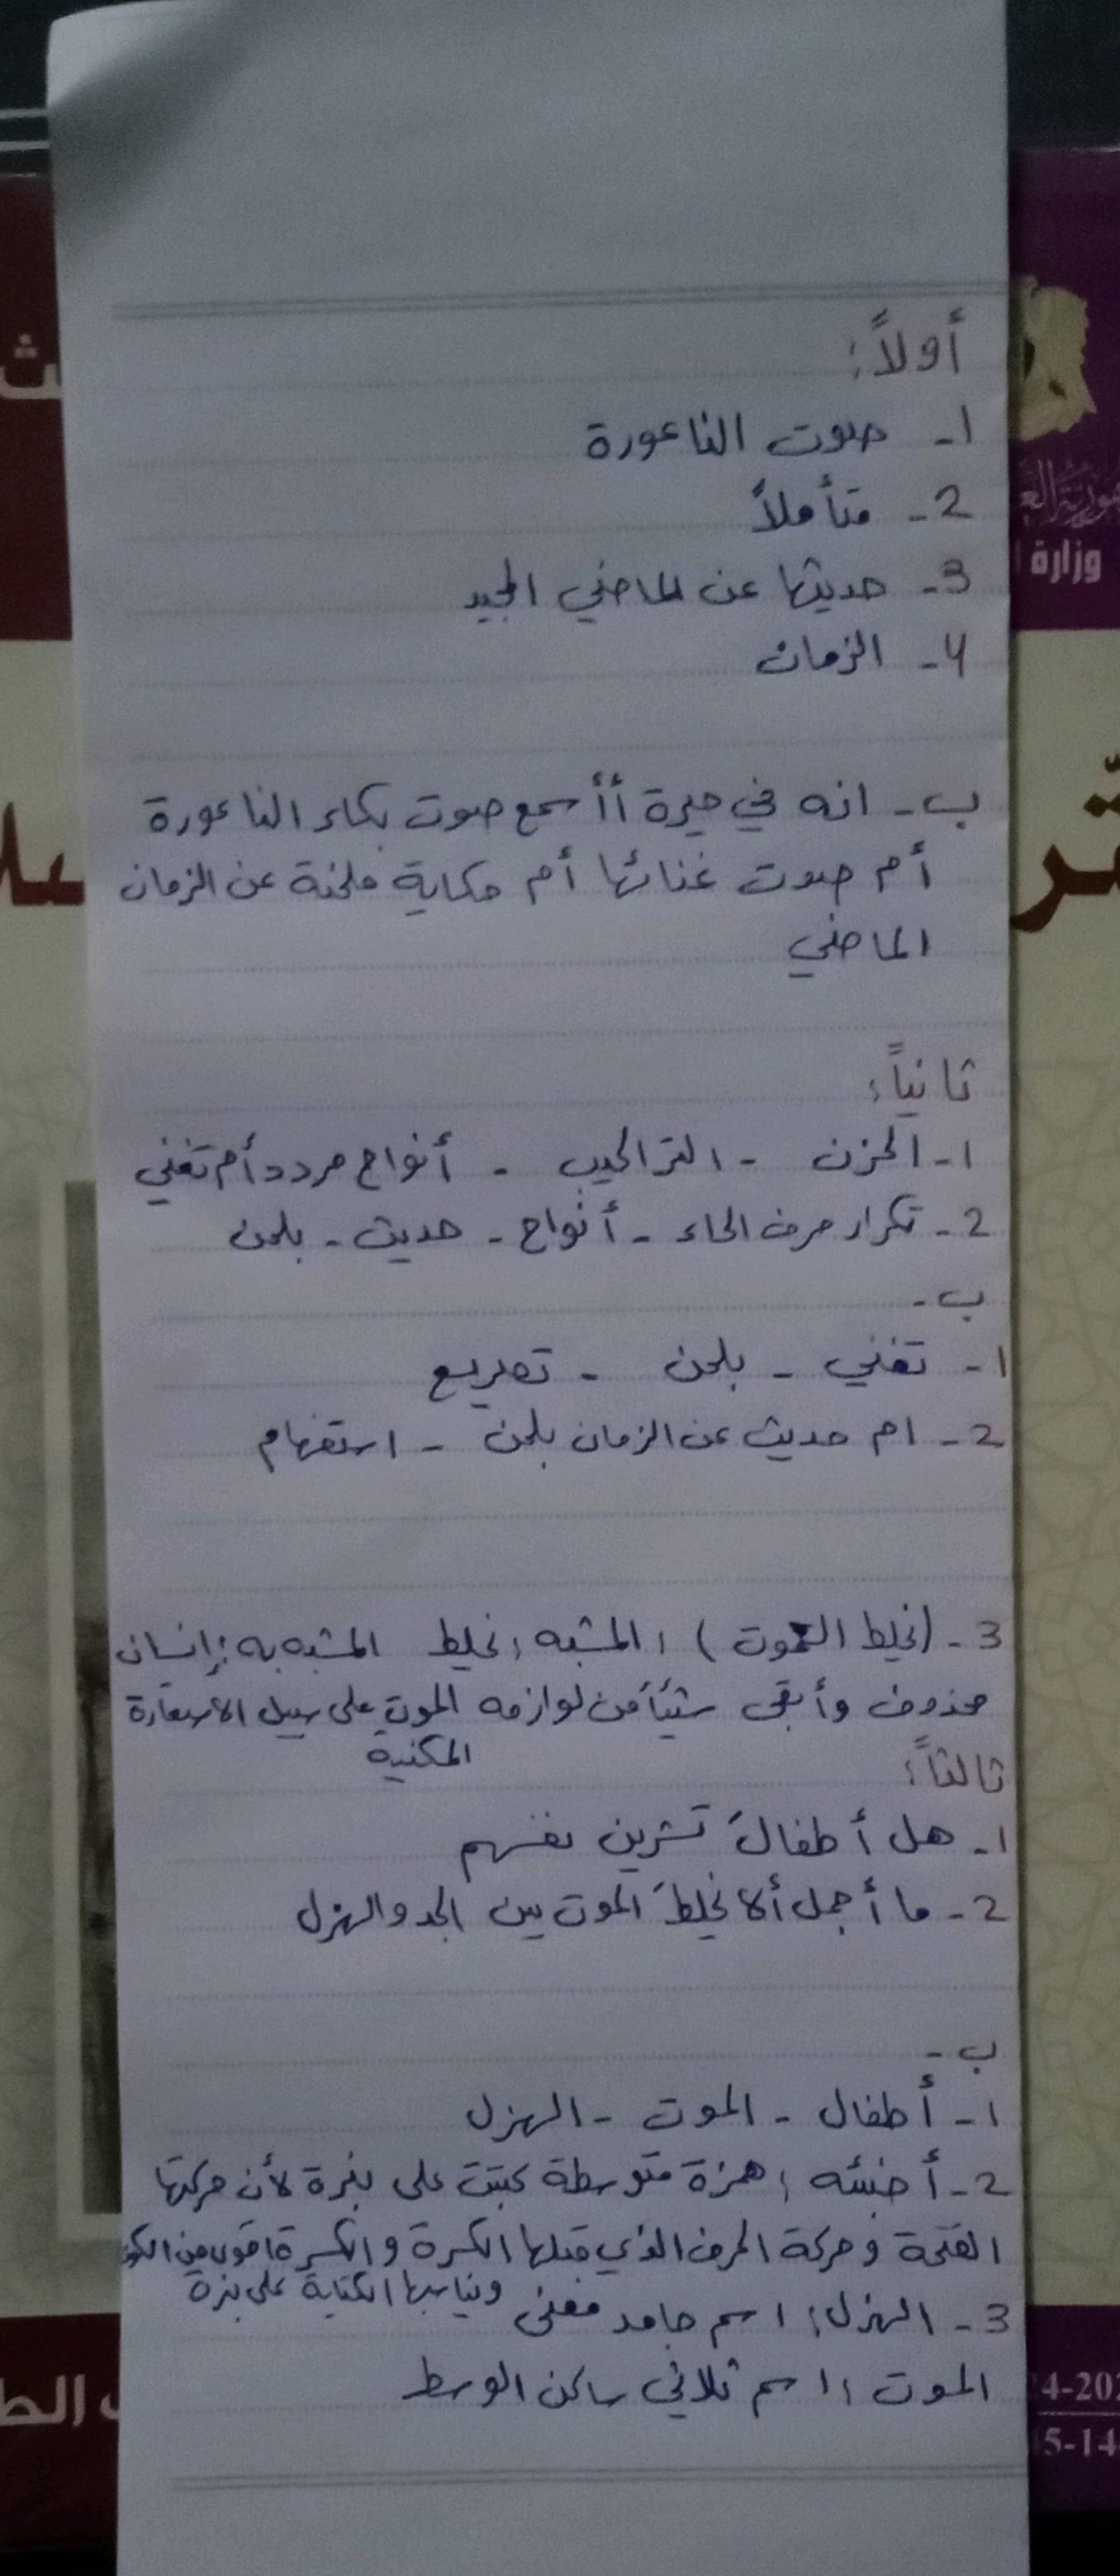 أولاً:
1- صوت الناعورة
2- متأملاً
3- حديثها عن الماضي المجيد
4- الزمان
ب- انه في حيرة أأسمع صوت بكاء الناعورة
أم صوت غنائها أم حكاية ملحنة عن الزمان
الماضي
ثانياً:
1- الحزن - التراكيب - أنواح مردد أم تغني
2- تكرار حرف الحاء - أنواح - حديث - بلحن
ب-
1- تغني - بلحن - تصريع
2- ام حديث عن الزمان بلحن - استفهام
3- (نخيط الموت) : المشبه : نخيط المشبه به : إنسان
محذوف وأبقى شيئاً من لوازمه الموت على سبيل الاستعارة
المكنية
ثالثاً:
1- هل أطفالَ تشرين نفسهم
2- ما أجمل ألا نخلطَ الموت بين الجد والهزل
ب-
1- أطفال - الموت - الهزل
2- أخبئه : همزة متوسطة كتبت على نبرة لأن حركتها
الفتحة وحركة الحرف الذي قبلها الكسرة والكسرة اقوى من
ويناسبها الكتابة على نبرة
3- الهزل : اسم جامد معنى
الموت : اسم ثلاثي ساكن الوسط
وزارة